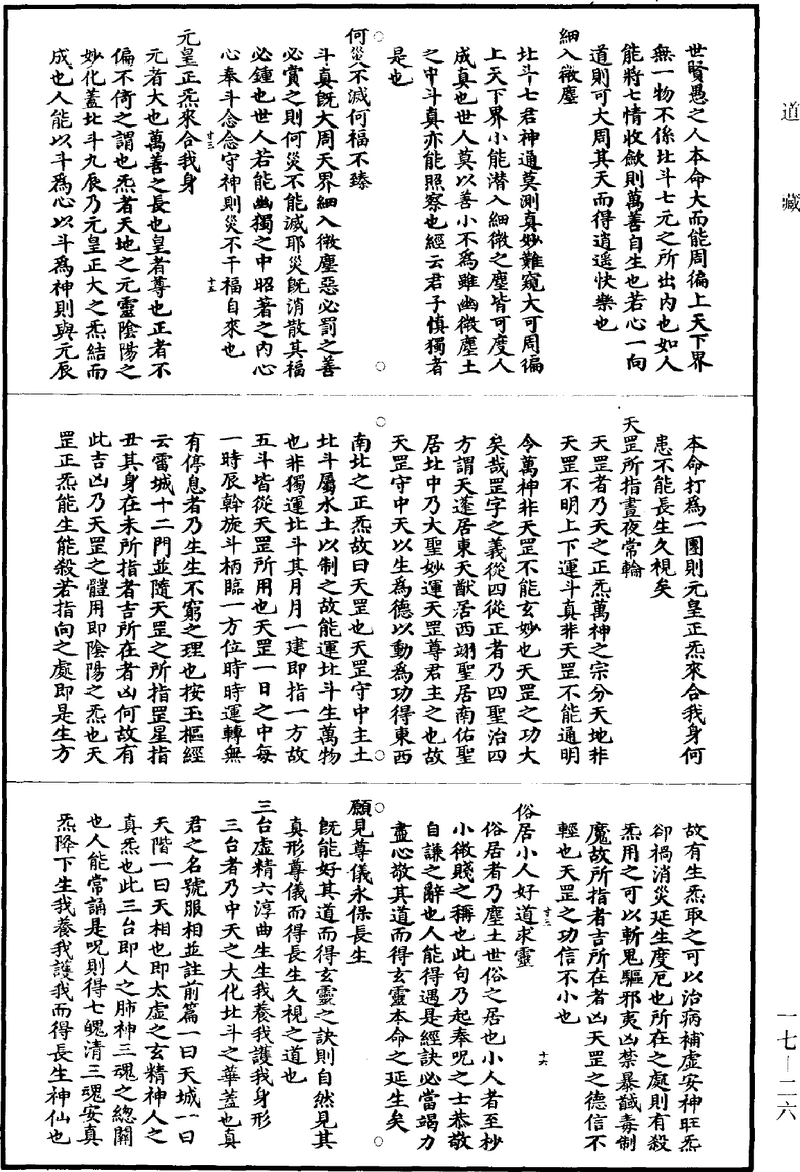 道藏
世賢愚之人本命大而能周徧上天下界
無一物不係北斗七元之所出內也如人
能將七情收斂則萬善自生也若心一向
道則可大周其天而得逍遥快樂也
細入微塵
北斗七君神通莫測真妙難窺大可周徧
上天下界小能潛入細微之塵皆可度人
成真也世人莫以善小不爲雖幽微塵土
之中斗真亦能照察也經云君子慎獨者
是也
何災不滅何福不臻
斗真既大周天界細入微塵惡必罰之善
必賞之則何災不能滅耶災既消散其福
必鍾也世人若能幽獨之中昭著之內心
心奉斗念念守神則災不干福自來也
元皇正炁來合我身
元者大也萬善之長也皇者尊也正者不
偏不倚之謂也炁者天地之元靈陰陽之
妙化蓋北斗九辰乃元皇正大之炁結而
成也人能以斗爲心以斗爲神則與元辰
本命打爲一團則元皇正炁來合我身何
患不能長生久視矣
天罡所指晝夜常輪
天罡者乃天之正炁萬神之宗分天地非
天罡不明上下運斗真非天罡不能通明
令萬神非天罡不能玄妙也天罡之功大
矣哉罡字之義從四從正者乃四聖治四
方謂天蓬居東天猷居西翊聖居南佑聖
居北中乃大聖妙運天罡尊君主之也故
天罡守中天以生爲德以動爲功得東西
南北之正炁故曰天罡也天罡守中主土
北斗屬水土以制之故能運北斗生萬物
也非獨運北斗其月月一建即指一方故
五斗皆從天罡所用也天罡一日之中每
一時辰斡旋斗柄臨一方位時時運轉無
有停息者乃生生不窮之理也按玉樞經
云雷城十二門並隨天罡之所指罡星指
丑其身在未所指者吉所在者凶何故有
此吉凶乃天罡之體用即陰陽之炁也天
罡正炁能生能殺若指向之處即是生方
故有生炁取之可以治病補虛安神旺炁
卻禍消災延生度厄也所在之處則有殺
炁用之可以斬鬼驅邪夷凶禁暴馘毒制
魔故所指者吉所在者凶天罡之德信不
輕也天罡之功信不小也
俗居小人好道求靈
俗居者乃塵土世俗之居也小人者至抄
小微賤之稱也此句乃起奉呪之士恭敬
自謙之辭也人能得遇是經訣必當竭力
盡心敬其道而得玄靈本命之延生矣
願見尊儀永保長生
既能好其道而得玄靈之訣則自然見其
真形尊儀而得長生久視之道也
三台虛精六淳曲生生我養我護我身形
三台者乃中天之大化北斗之華蓋也真
君之名號服相並註前篇一曰天城一曰
天階一曰天相也即太虛之玄精神人之
真炁也此三台即人之肺神三魂之總關
也人能常誦是呪則得七魄清三魂安真
炁降下生我養我護我而得長生神仙也
一七—二六